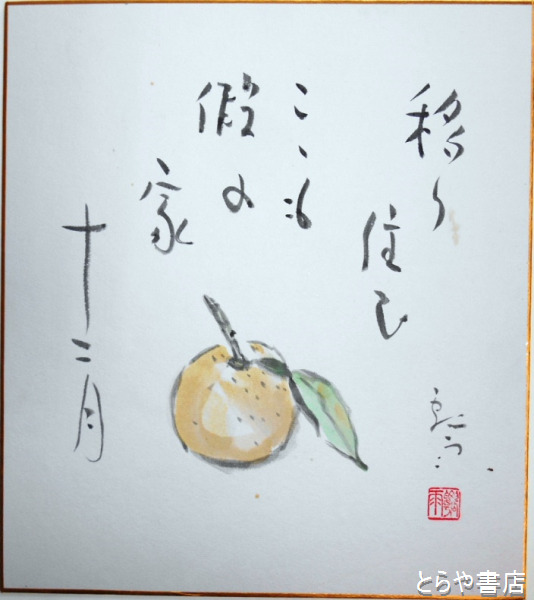 移り
住む
こゝも
假の
家
十二月
とらや書店